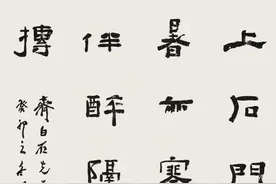 上石門
暑無寒
伴醉隔
齊白石先
癸卯之